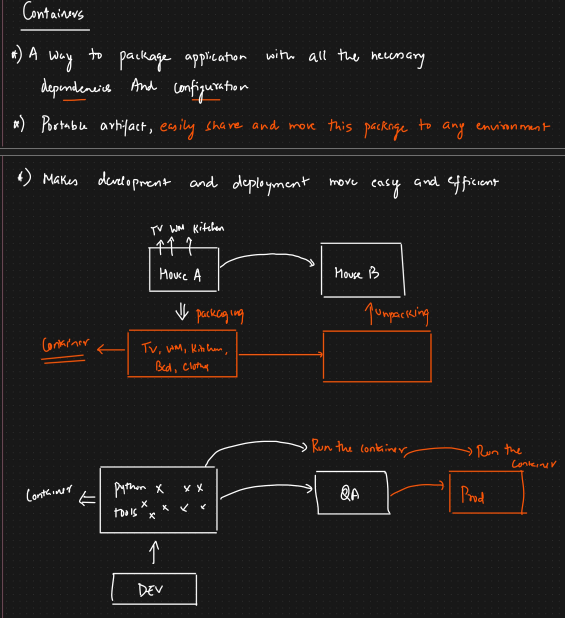 Containers
*) A way to package application with all the necessary
dependencies And configuration
*) Portable artifact, easily share and move this package to any environment
*) Makes development and deployment more easy and efficient
TV WM Kitchen
House A
House B
packaging
Unpacking
Container
TV, WM, Kitchen,
Bed, Cloths
Run the container
Run the
container
Container
python x x x
tools x x x x x
QA
Prod
DEV